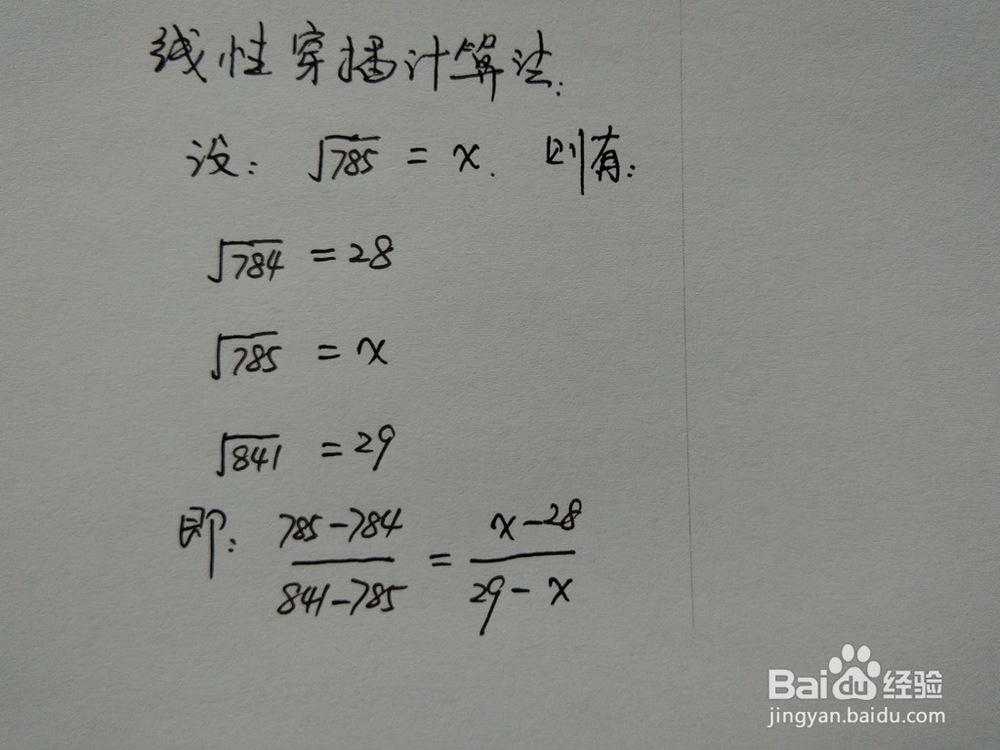 线性穿插计算法:
设: √785 = x. 则有:
√784 = 28
√785 = x
√841 = 29
即: (785-784)/(841-785) = (x-28)/(29-x)
Baidu经验
jingyan.baidu.com